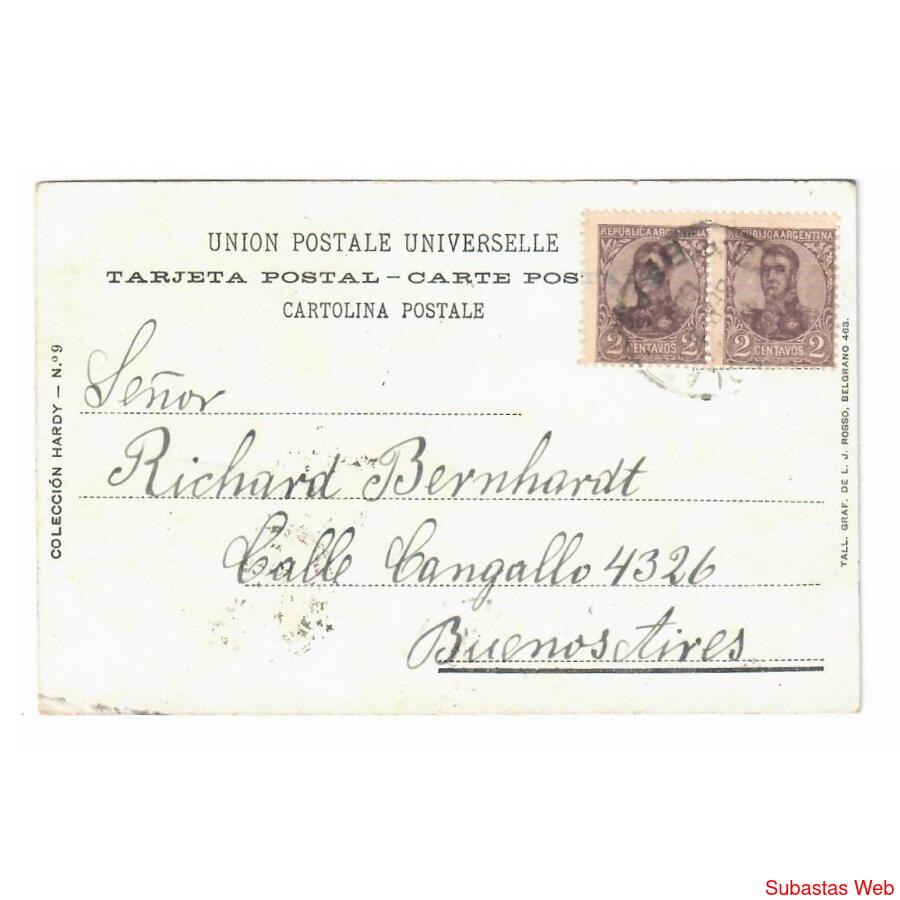 UNION POSTALE UNIVERSELLE
TARJETA POSTAL – CARTE POST
CARTOLINA POSTALE
REPÚBLICA ARGENTINA
2 CENTAVOS 2
REPÚBLICA ARGENTINA
2 CENTAVOS 2
COLECCIÓN HARDY – N.º 9
Señor
Richard Bernhardt
Calle Cangallo 4326
Buenos Aires
TALL. GRAF. DE L. J. ROSSO, BELGRANO 463.
Subastas Web